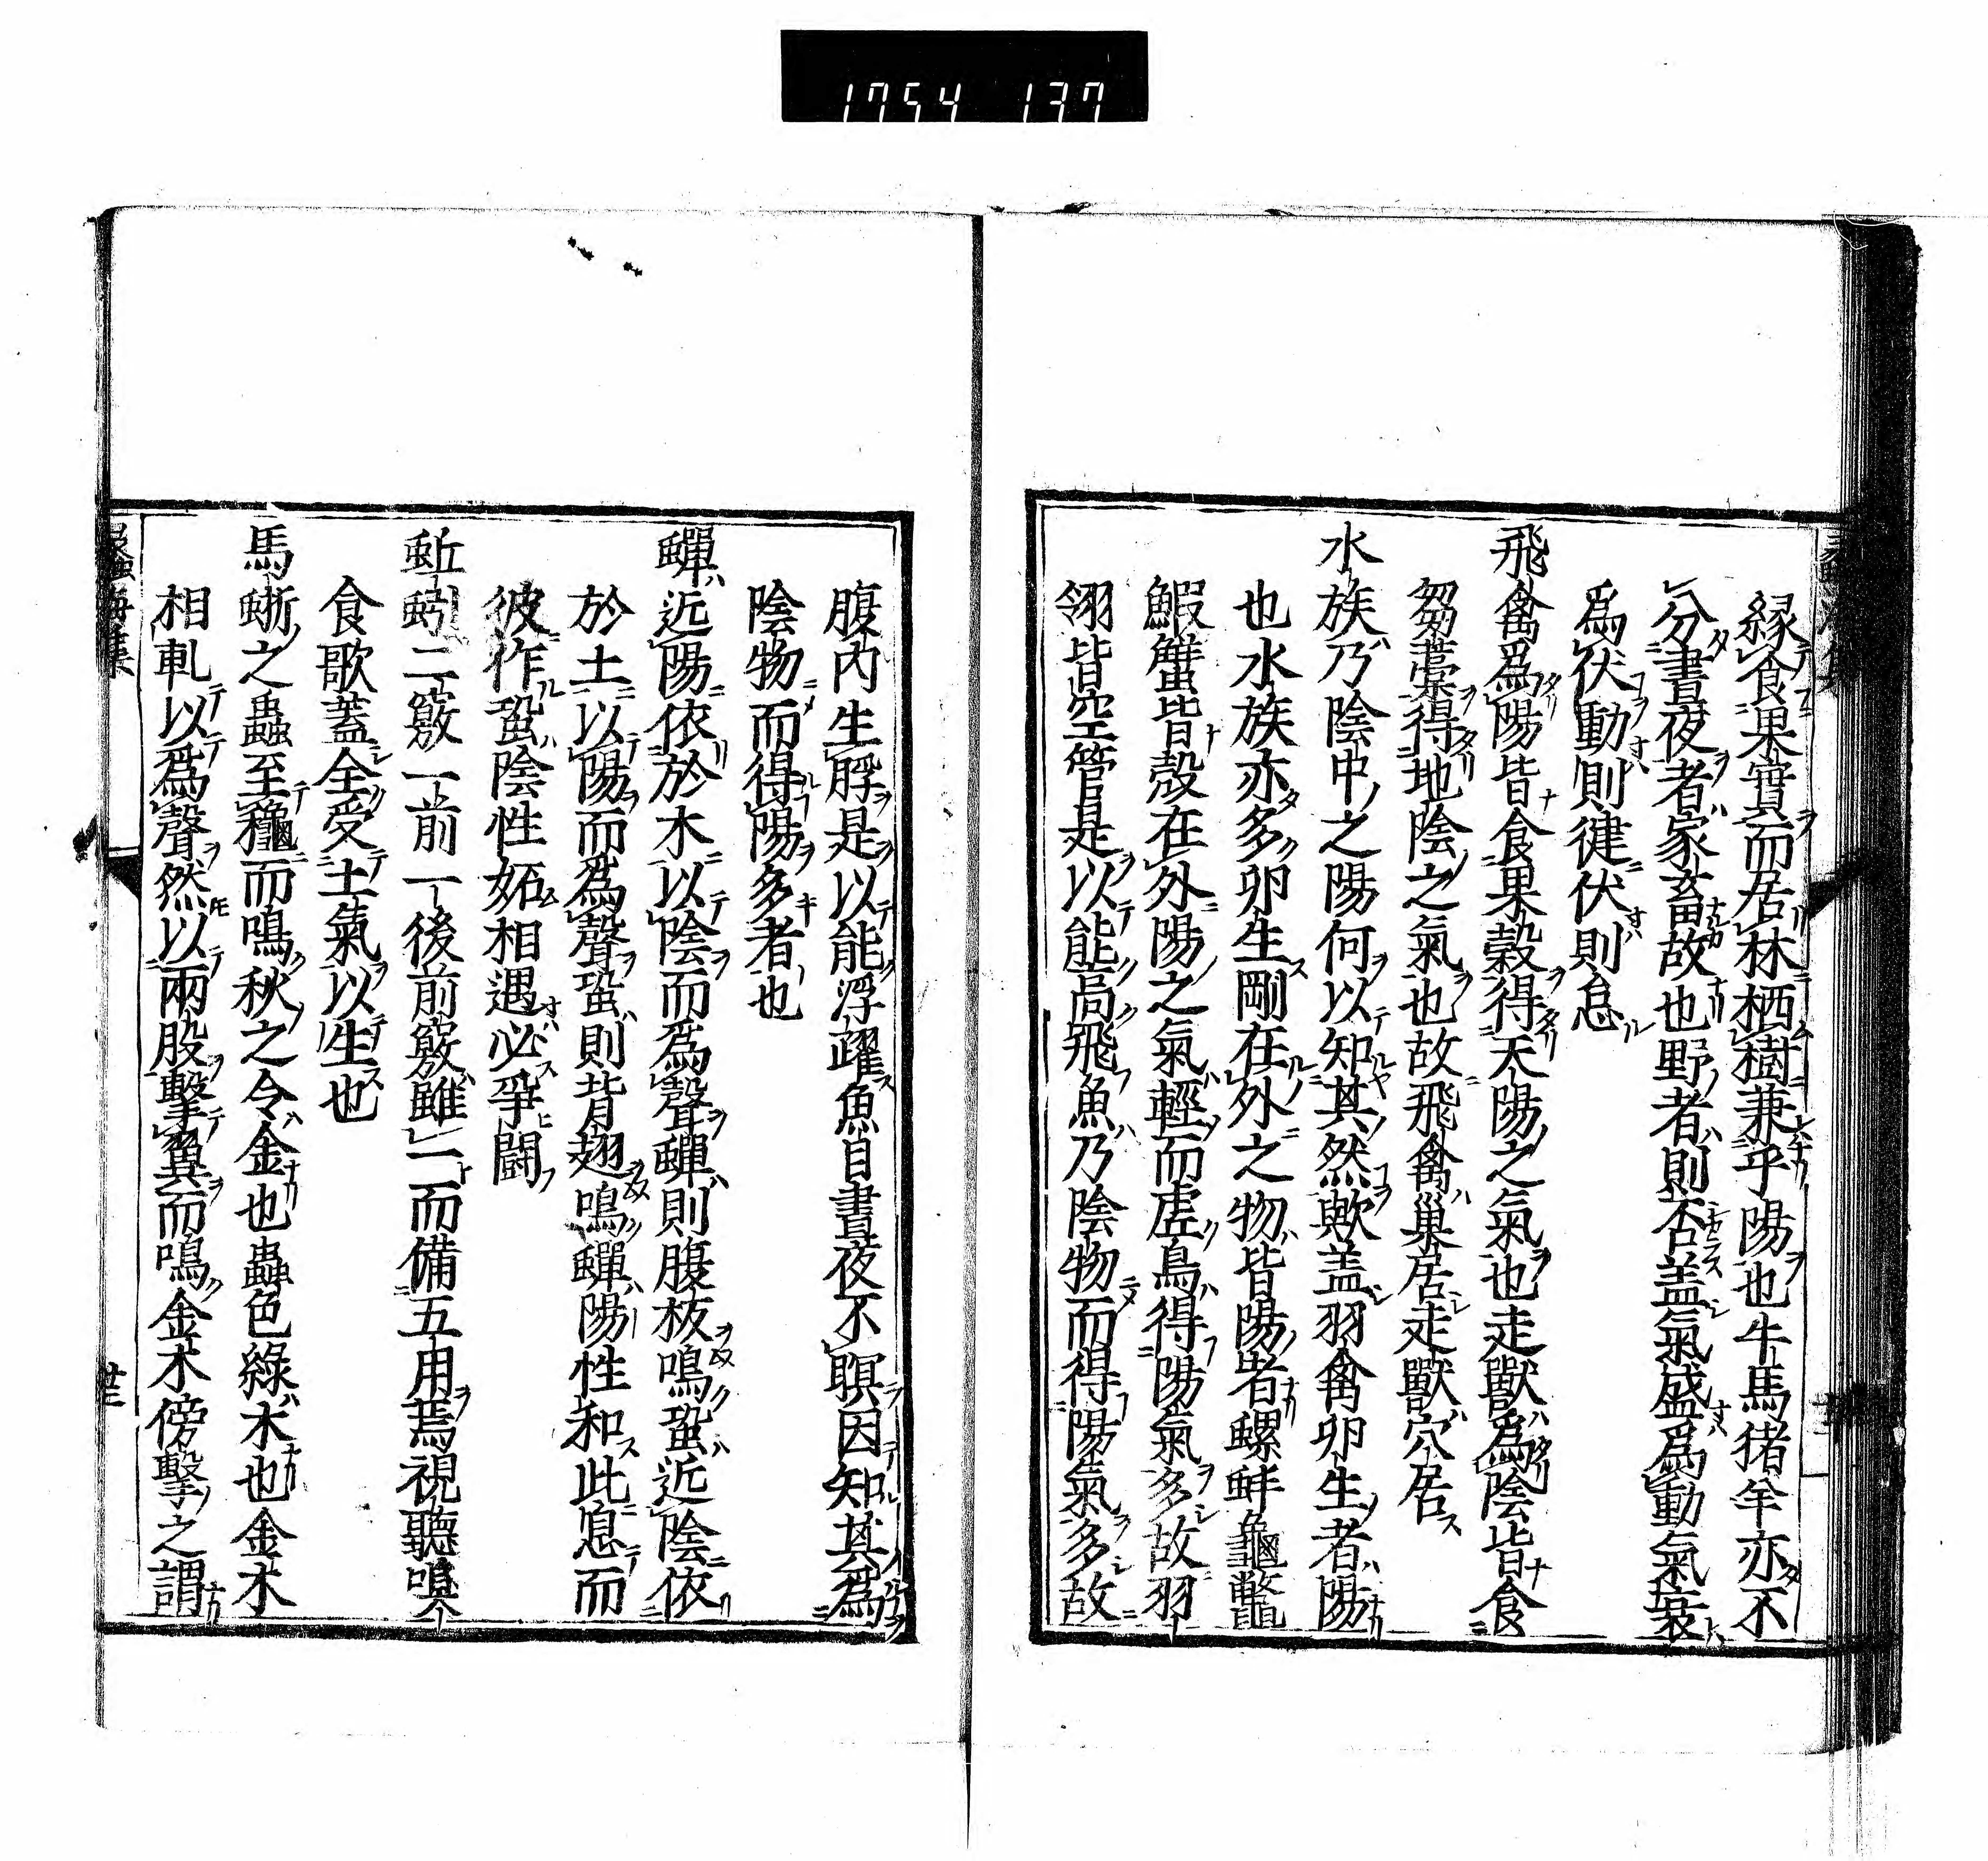 1754 137
縁食果實而居林栖樹兼乎陽也牛馬猪羊亦不
分晝夜者家畜故也野者則否盖氣盛爲動氣衰
爲伏動則健伏則怠
飛禽爲陽皆食果穀得天陽之氣也走獸爲陰皆食
芻藁得地陰之氣也故飛禽巢居走獸穴居
水族乃陰中之陽何以知其然歟盖羽禽卵生者陽
也水族亦多卵生剛在外之物皆陽者螺蚌龜鼈
鰕蟹皆殼在外陽之氣輕而虛鳥得陽氣多故羽
翎皆空管是以能高飛魚乃陰物而得陽氣多故
腹内生脬是以能浮躍魚目晝夜不瞑因知其爲
陰物而得陽多者也
蟬近陽依於木以陰而爲聲蟬則腹板鳴蛩近陰依
於土以陽而爲聲蛩則背翅鳴蟬陽性和此息而
彼作蛩陰性妬相遇必爭鬪
蚯蚓二竅一前一後前竅雖一而備五用焉視聽嗅
食歌蓋全受土氣以生也
馬蜥之蟲至穐而鳴秋之令金也蟲色綠木也金木
相軋以爲聲然以兩股擊翼而鳴金木傍擊之謂
蠡海集
廿三